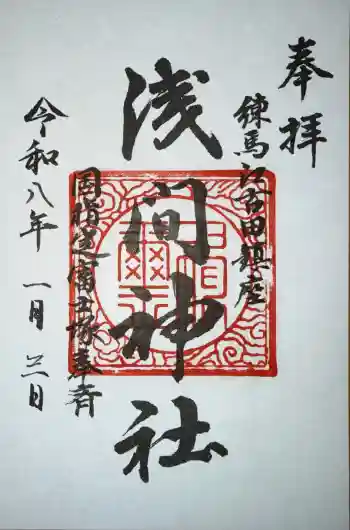 奉拝
練馬江古田鎮座
浅間神社
国指定富士塚奉斉
令和八年一月三日